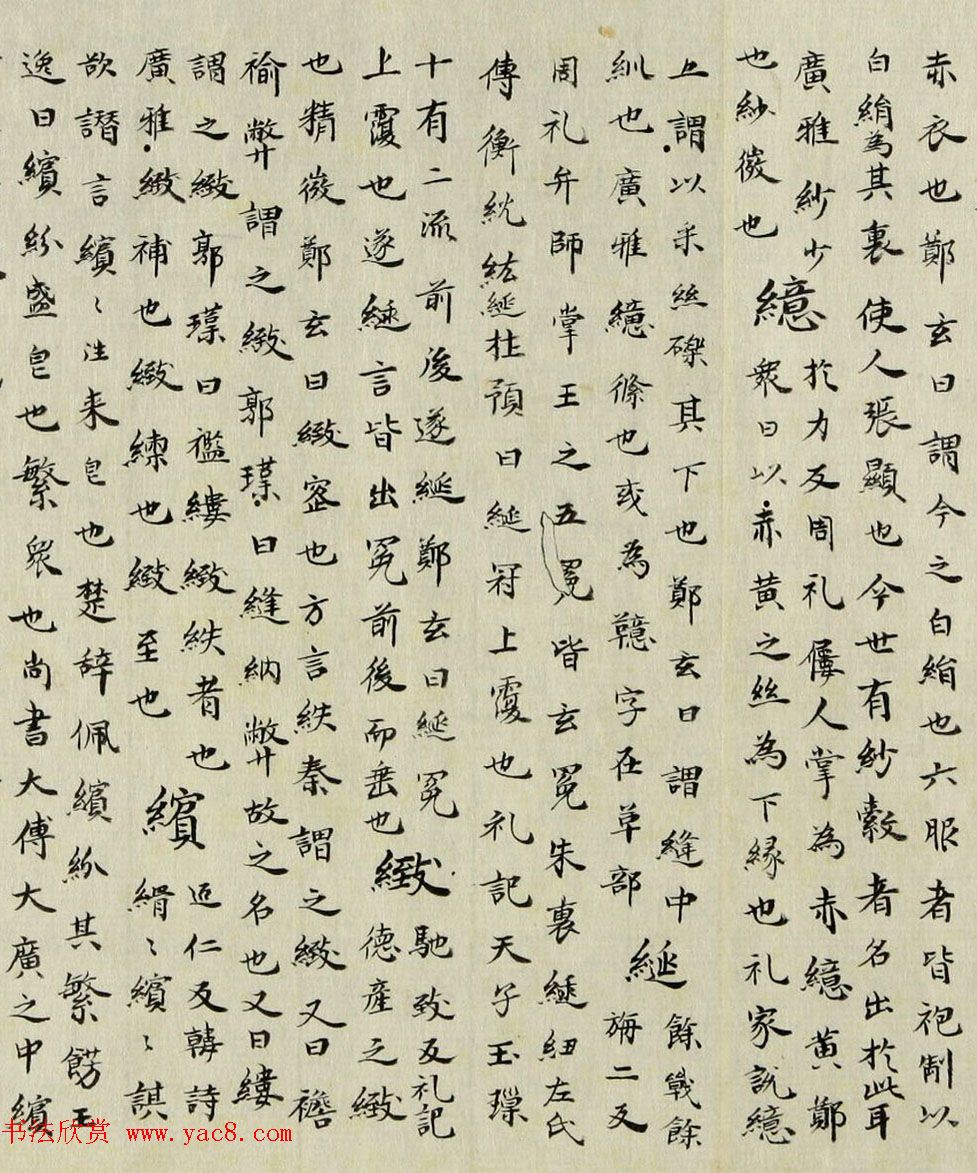 赤衣也鄭玄曰謂今之白縚也六服者皆袍制以
白縚為其裏使人張顯也今世有紗縠者名出於此耳
廣雅紗少於力反周礼屨人掌為赤繶黃鄭
也紗㣲也繶衆曰以赤黃之絲為下緣也礼家說繶
上謂以采絲礫其下也鄭玄曰謂縫中
紃也廣雅繶絛也或為䪰字在草部綖餘戰餘旃二反
周礼弁師掌王之五冕皆玄冕朱裏綖紐左氏
傳衡紞紘綖杜預曰綖冠上覆也礼記天子玉璪
十有二流前後邃綖鄭玄曰綖冕
上覆也邃綖言皆出冕前後而垂也緻馳致反礼記德產之緻
也精㣲鄭玄曰緻密也方言紩秦謂之緻又曰襜
褕弊謂之緻郭璞曰縫納弊故之名也又曰縷
謂之緻郭璞曰襤縷緻紩者也
廣雅緻補也緻練也緻至也繽匹仁反韓詩縃〻繽〻諆
欲譖言繽〻往来皃也楚辞佩繽紛其繁餝王
逸曰繽紛盛皃也繁衆也尚書大傅大廣之中繽
书法欣赏 www.yac8.com